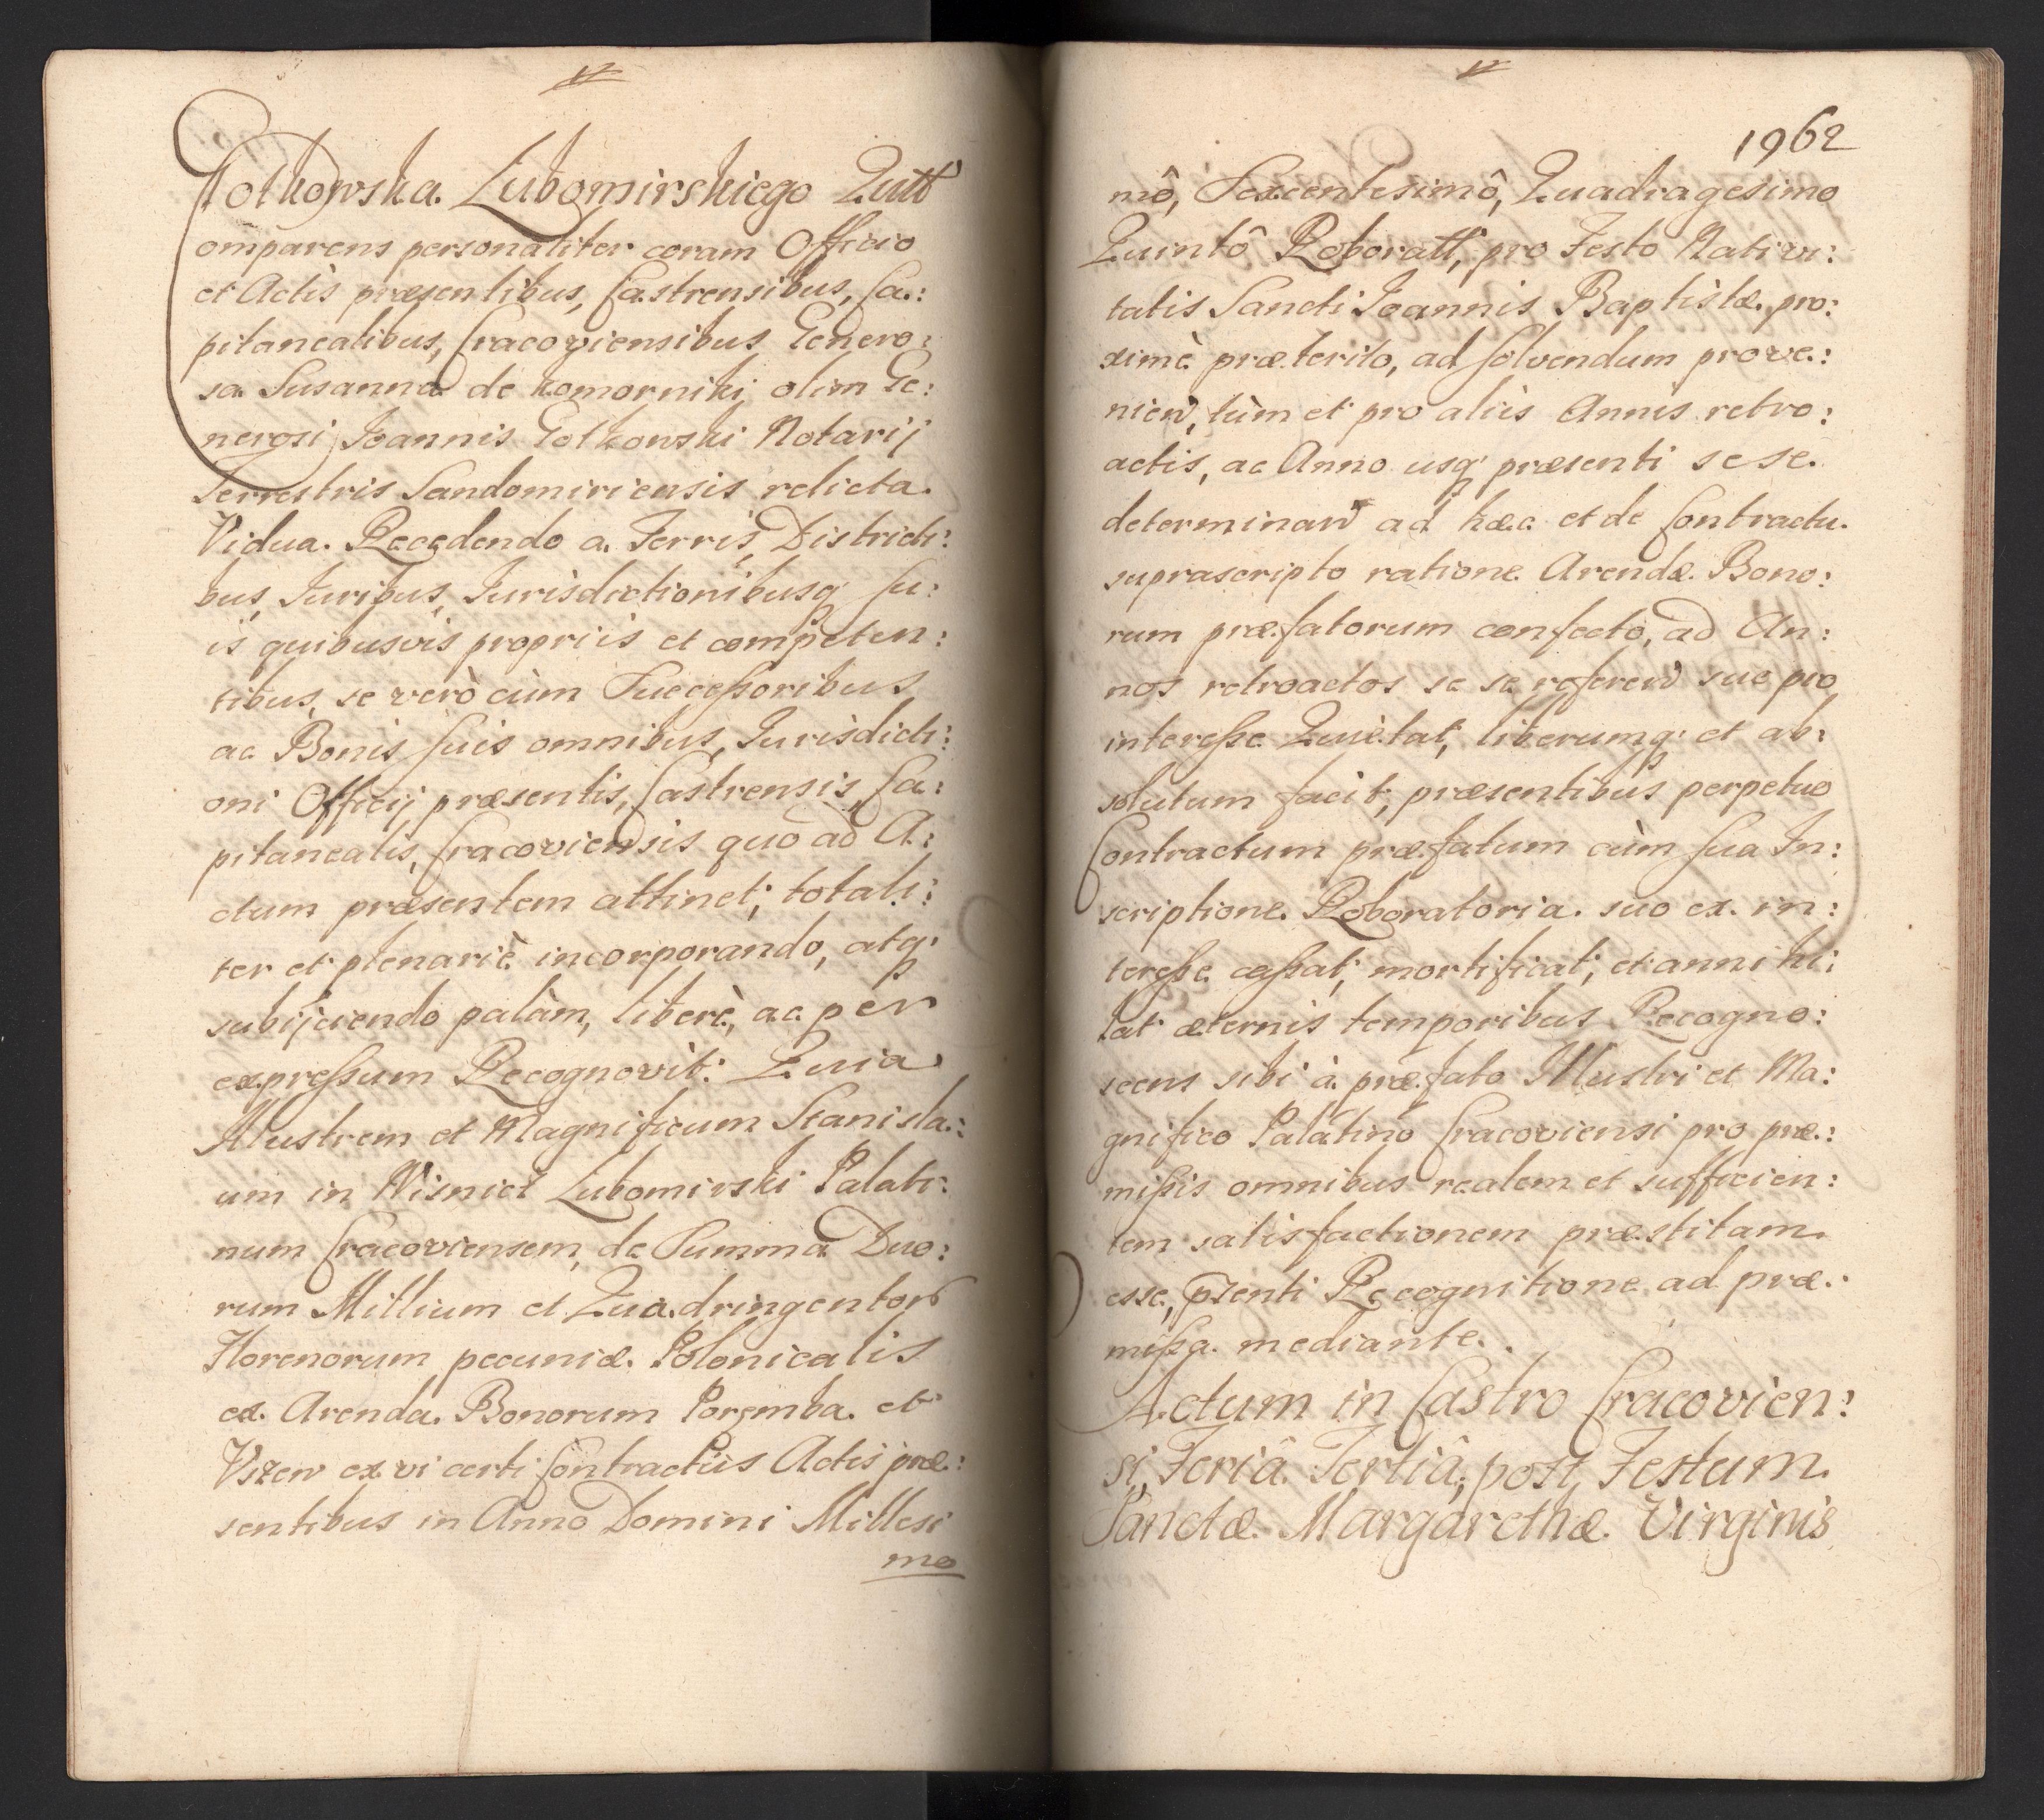 Golkowska Lubomirskiego Quitt
Comparens personaliter coram Officio
et Actis præsentibus, Castrensibus, Ca:
pitanealibus, Cracoviensibus Genero:
sa Susanna de Komorniki olim Ge:
nerosi Joannis Golkowski Notarij
Terrestris Sandomiriensis relicta
Vidua. Recedendo a Terris, Districti:
bus, Juribus, Jurisdictionibusq su:
is quibusvis propriis et competen:
tibus, se verò cùm Successoribus
ac Bonis suis omnibus, Jurisdicti:
oni Officij præsentis, Castrensis, Ca:
pitanealis, Cracoviensis quo ad A:
ctum præsentem attinet; totali:
ter et plenariè incorporando, atq
subijciendo palàm, liberè, ac per
expressum Recognovit: Quia
Illustrem et Magnificum Stanisla:
um in Wisnicz Lubomirski Palati:
num Cracoviensem, de Summa Duo:
rum Millium et Quadringentor
Florenorum pecuniæ Polonicalis
ex Arenda Bonorum Poremba et
Uszew ex vi certi Contractûs Actis præ:
sentibus in Anno Domini Millesi
mo
1962
mô, Sexcentesimô, Quadragesimo
Quintô Roboratt, pro Festo Nativi:
tatis Sancti Joannis Baptistæ pro:
ximè præterito, ad solvendum prove:
nien, tùm et pro aliis Annis retro:
actis, ac Anno usq præsenti sese
determinan ad hæc et de Contractu
suprascripto ratione Arendæ Bono:
rum præfatorum confecto, ad An:
nos retroactos se se referen suo pro
interesse Quietat, liberumq et ab:
solutum facit, præsentibus perpetuo
Contractum præfatum cùm sua In:
scriptione Roboratoria suo ex in:
teresse cassat, mortificat, et annihi:
lat æternis temporibus Recogno:
scens sibi à præfato Illustri et Ma:
gnifico Palatino Cracoviensi pro præ:
missis omnibus realem et sufficien:
tem satisfactionem præstitam
esse, pzenti Recognitione ad præ:
missa mediante.
Actum in Castro Cracovien:
si, Feriâ Tertiâ, post Festum
Sanctæ Margarethæ Virginis